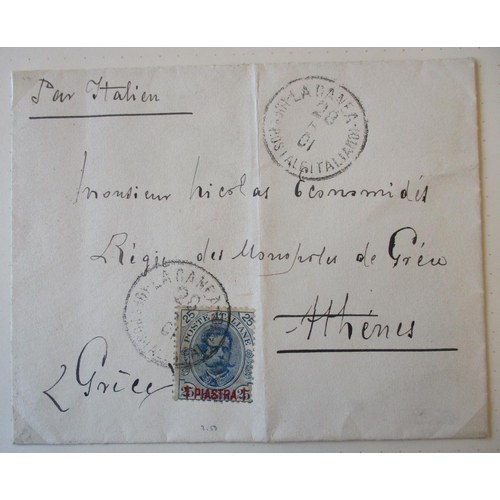 Par Italien
LA CANEA
20
01
POSTALE ITALIANO
Monsieur Nicolas Economidés
Régie des Monopoles de Grèce
Athènes
Grèce
LA CANEA
20
01
25 25
POSTE ITALIANE
1 PIASTRA 1
25 25